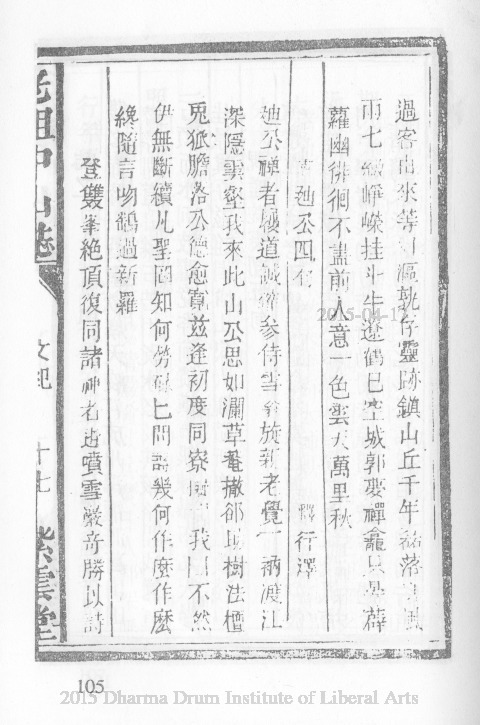 過客由來等 漚孰存靈跡鎮山丘千年 落 風
雨七 崢嶸挂斗牛遼鶴已空城郭變禪龕 薜
蘿幽徘徊不盡前人意一色雲天萬里秋
迪公四
釋行澤
迪公禪者履道誠 參侍雪 旋 老覺一衲渡江
深隱雲壑我來此山公思如瀾草菴撤卻 樹法幢
兕狐膽落公德愈 茲逢初度同寮 我 不然
伊無斷續凡聖罔知何勞 七問 幾何作麼作麼
纔隨言吻鷂過新羅
登雙峯絕頂復同諸禪者過噴雪巖奇勝以詩
老祖中山誌
文
十七
紫雲堂
2015-04-1
105
2015 Dharma Drum Institute of Liberal Arts